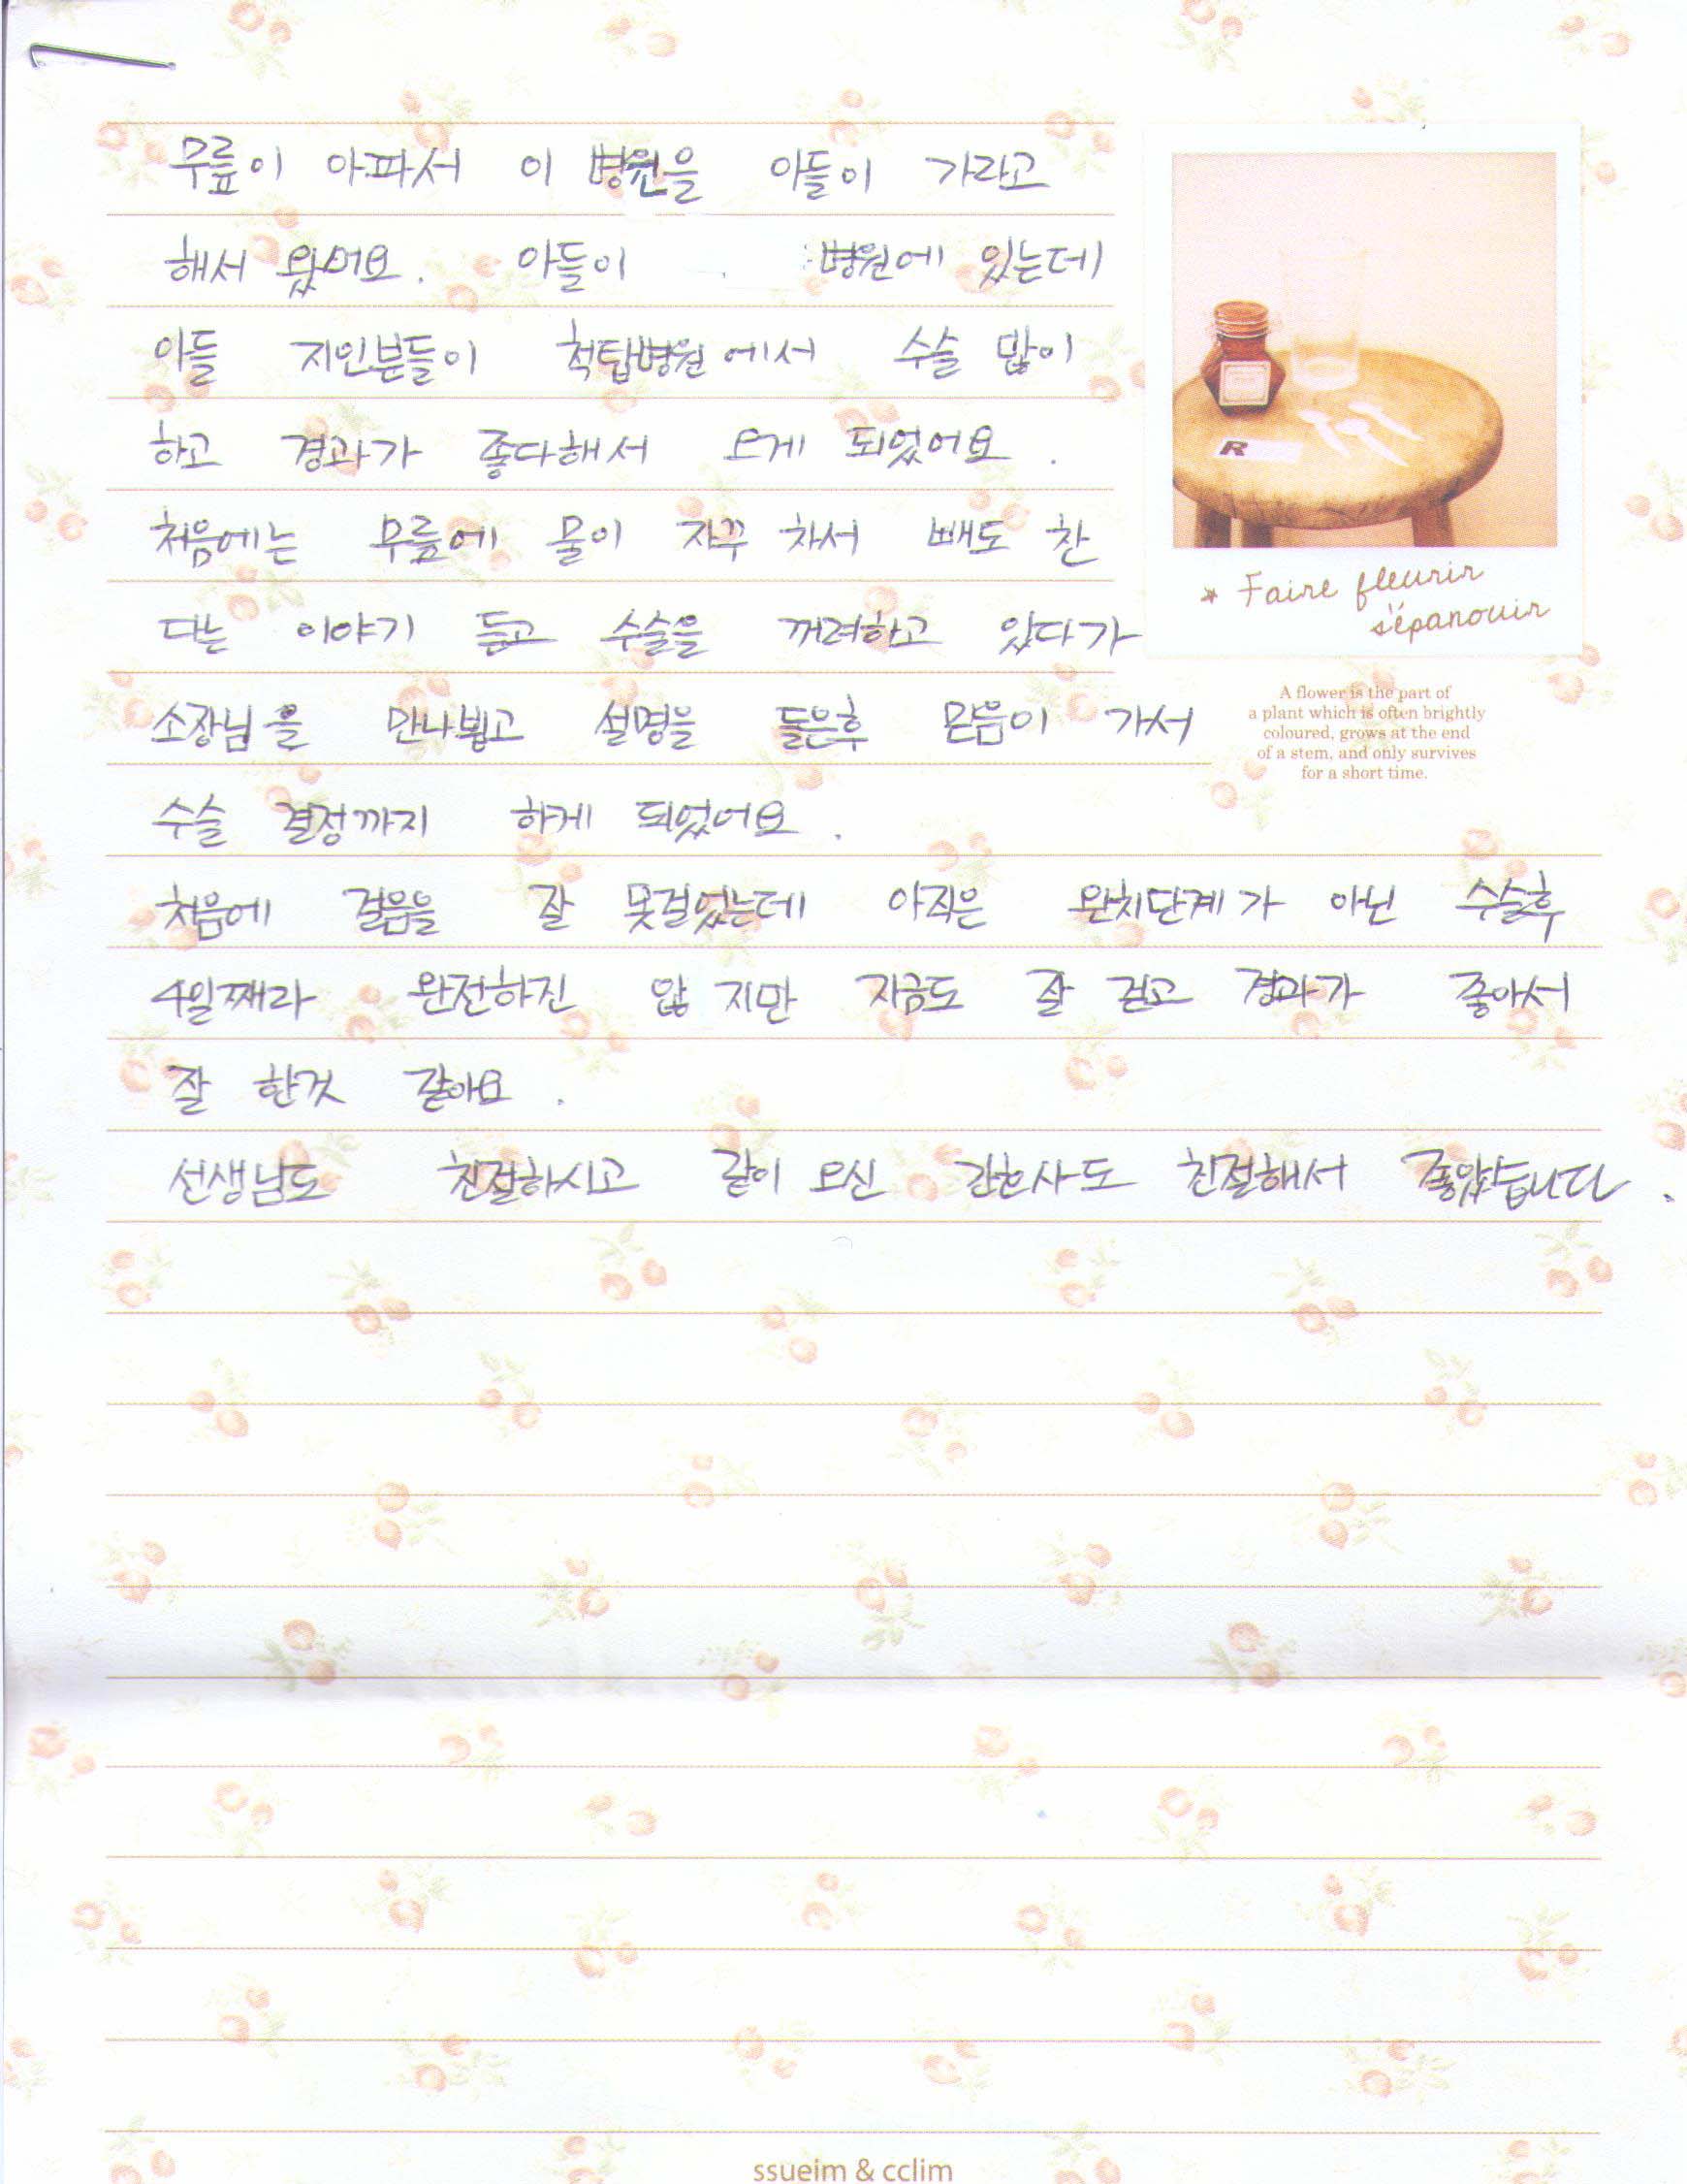 무릎이 아파서 이 병원을 아들이 가라고
해서 왔어요. 아들이 병원에 있는데
아들 지인분들이 척탑병원에서 수술 많이
하고 경과가 좋다해서 오게 되었어요.
처음에는 무릎에 물이 자꾸 차서 빼도 찬
다는 이야기 듣고 수술을 꺼려하고 있다가
소장님을 만나뵙고 설명을 들은후 믿음이 가서
수술 결정까지 하게 되었어요.
처음에 걸음을 잘 못걸었는데 아직은 완치단계가 아닌 수술후
4일째라 완전하진 않지만 지금도 잘 걷고 경과가 좋아서
잘 한것 같아요.
선생님도 친절하시고 같이 오신 간호사도 친절해서 좋았습니다.
R
* Faire fleurir
s'épanouir
A flower is the part of
a plant which is often brightly
coloured, grows at the end
of a stem, and only survives
for a short time.
ssueim & cclim